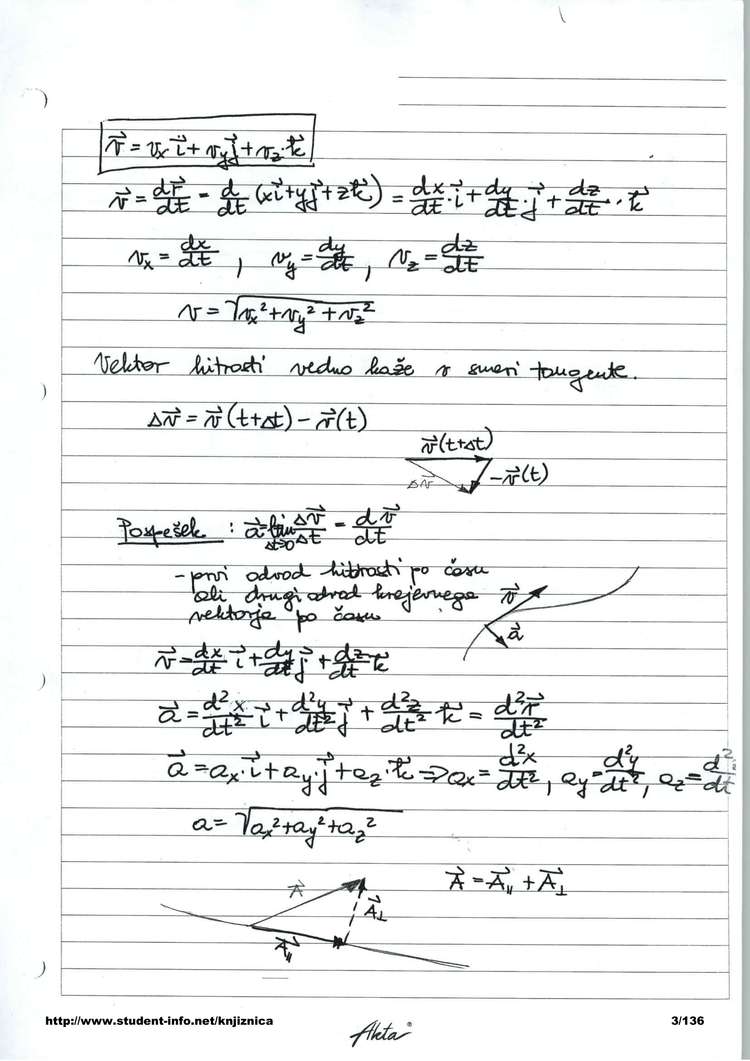 v⃗ = vₓ·i⃗ + v_y j⃗ + v_z·k⃗
v⃗ = dr⃗/dt = d/dt (x i⃗ + y j⃗ + z k⃗) = dx/dt·i⃗ + dy/dt·j⃗ + dz/dt·k⃗
vₓ = dx/dt , v_y = dy/dt , v_z = dz/dt
v = √(vₓ² + v_y² + v_z²)
Vektor hitrosti vedno kaže v smeri tangente.
Δv⃗ = v⃗(t+Δt) − v⃗(t)
v⃗(t+Δt)
Δv⃗ −v⃗(t)
Pospešek : a⃗ = lim Δt→0 Δv⃗/Δt = dv⃗/dt
- prvi odvod hitrosti po času
ali drugi odvod krajevnega
vektorja po času
v⃗
a⃗
v⃗ = dx/dt i⃗ + dy/dt j⃗ + dz/dt k⃗
a⃗ = d²x/dt² i⃗ + d²y/dt² j⃗ + d²z/dt² k⃗ = d²r⃗/dt²
a⃗ = aₓ·i⃗ + a_y·j⃗ + a_z·k⃗ ⇒ aₓ = d²x/dt² , a_y = d²y/dt² , a_z = d²/dt
a = √(aₓ² + a_y² + a_z²)
A⃗ = A⃗∥ + A⃗⊥
A⃗
A⃗⊥
A⃗∥
http://www.student-info.net/knjiznica 3/136
Akta®